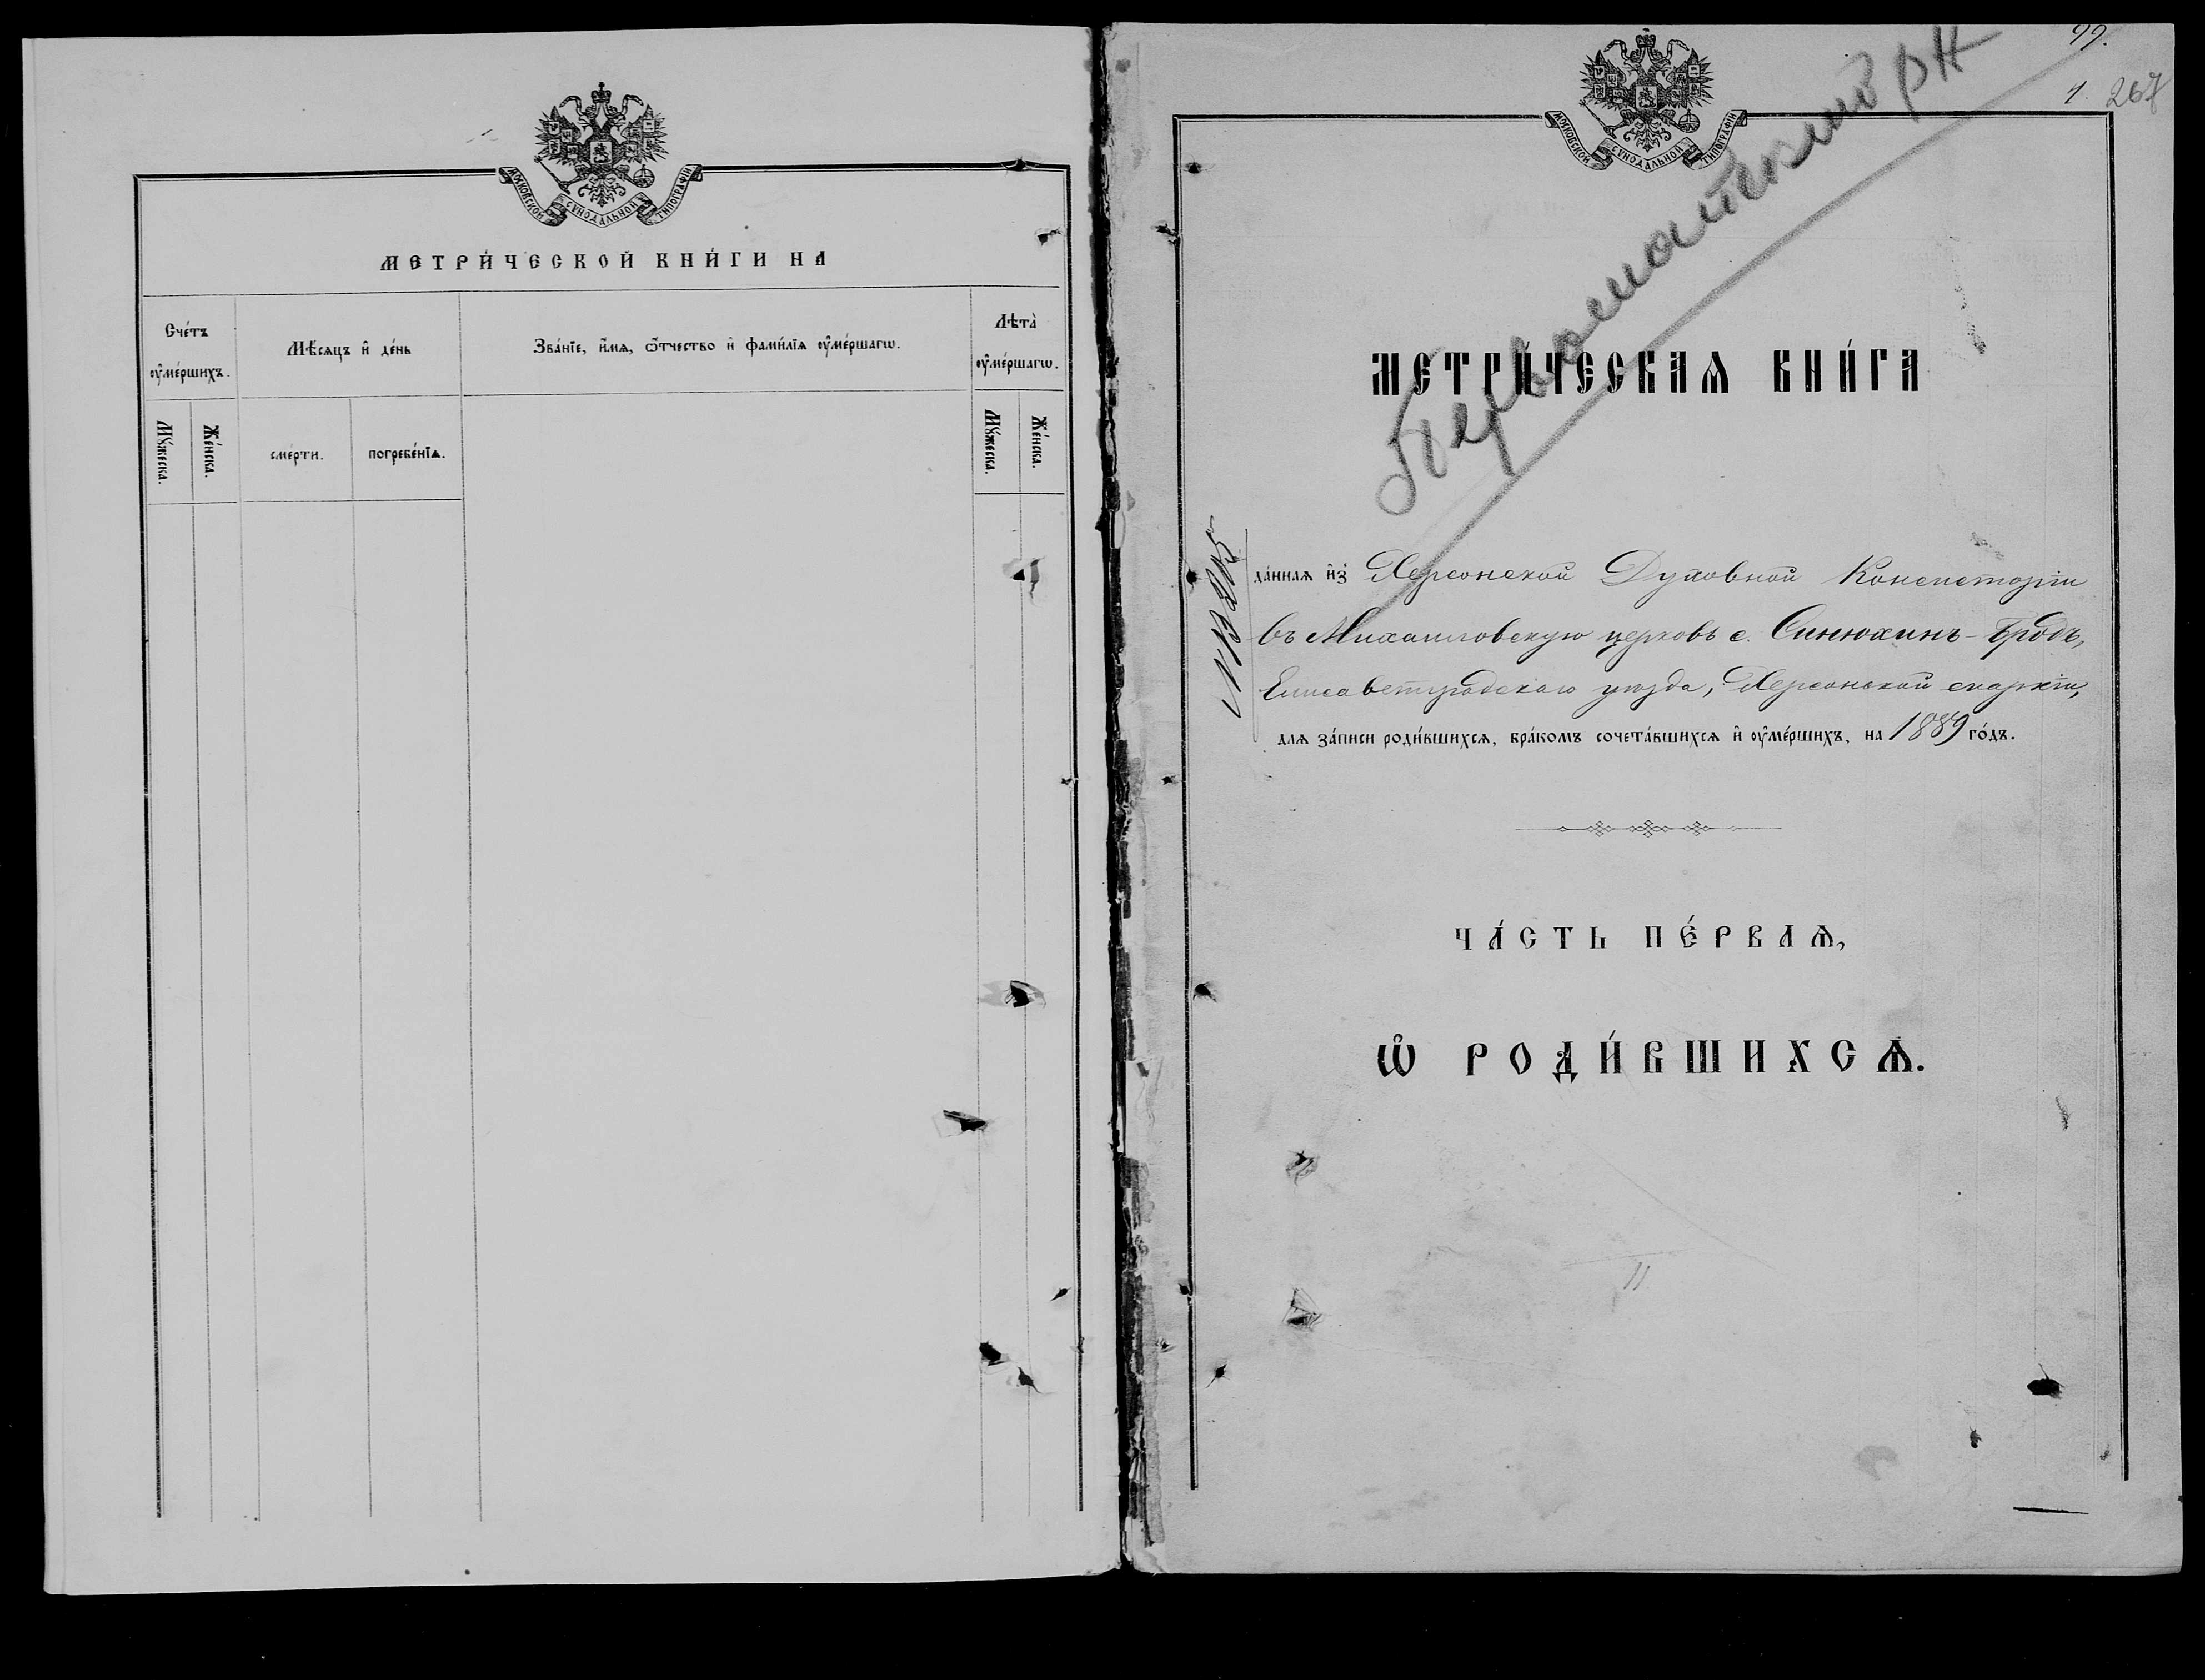 МОСКОВСКОЙ СѴНОДАЛЬНОЙ ТИПОГРАФІИ
МЕТРИ́ЧЕСКОЙ КНИ́ГИ НА
Сче́тъ ᲂу҆ме́ршихъ.
Мѣ́сѧцъ и҆ де́нь
Зва́нїе, и҆́мѧ, ѻ҆́тчество и҆ фами́лїѧ ᲂу҆ме́ршагѡ.
Лѣта̀ ᲂу҆ме́ршагѡ.
Мꙋ́жеска.
Же́нска.
сме́рти.
погребе́нїѧ.
Мꙋ́жеска.
Же́нска.
99.
1. 267
МОСКОВСКОЙ СѴНОДАЛЬНОЙ ТИПОГРАФІИ
Первомайский рн
МЕТРИ́ЧЕСКАѦ КНИ́ГА
да́ннаѧ и҆з̾ Херсонской Духовной Консисторіи
въ Михайловскую церковь с. Синюхинъ-Бродъ,
Елисаветградскаго уѣзда, Херсонской епархіи,
длѧ за́писи роди́вшихсѧ, бра́комъ сочета́вшихсѧ и҆ ᲂу҆ме́ршихъ, на 1889 го́дъ.
ЧА́СТЬ ПЕ́РВАѦ,
Ѡ҆ РОДИ́ВШИХСѦ.
11